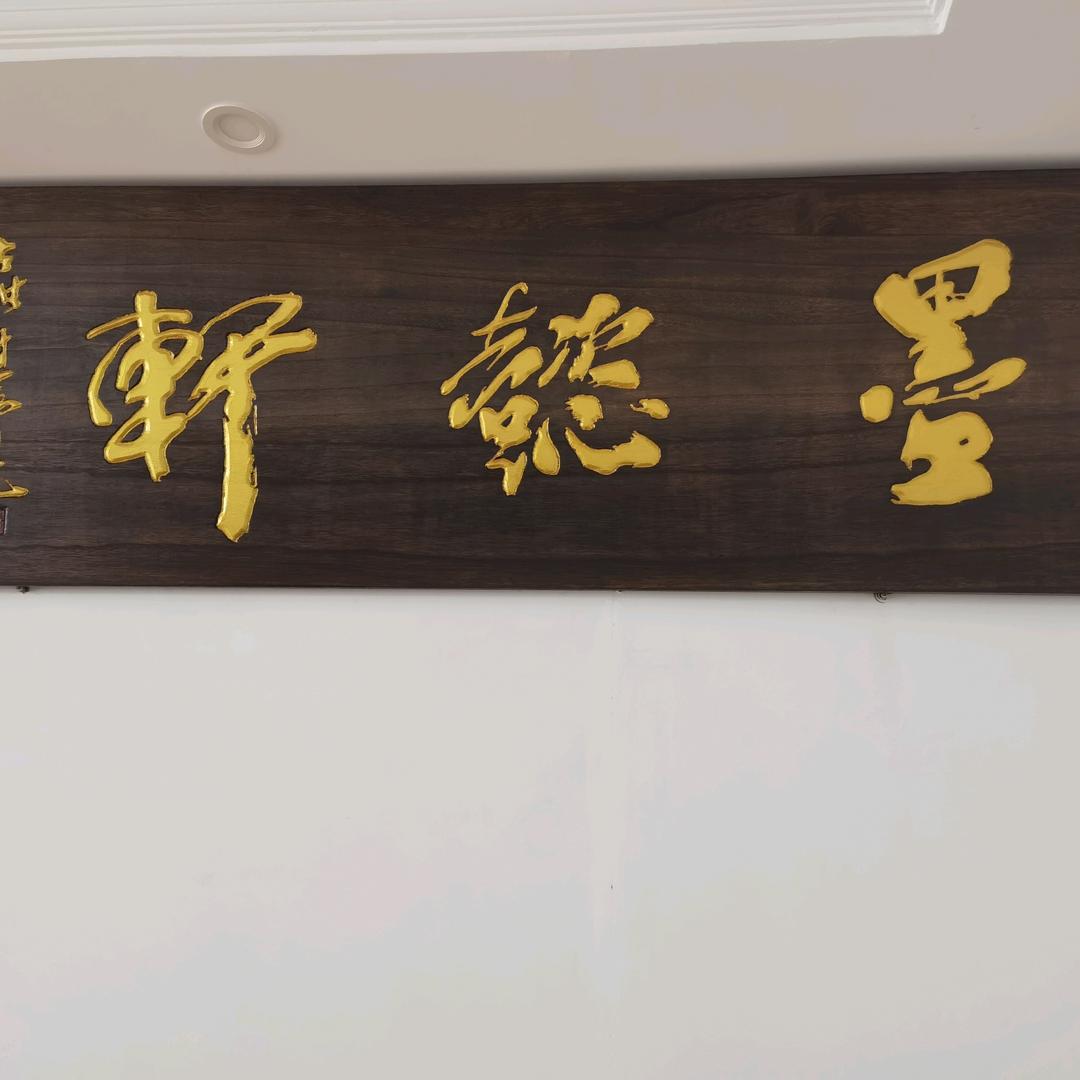 墨懿軒